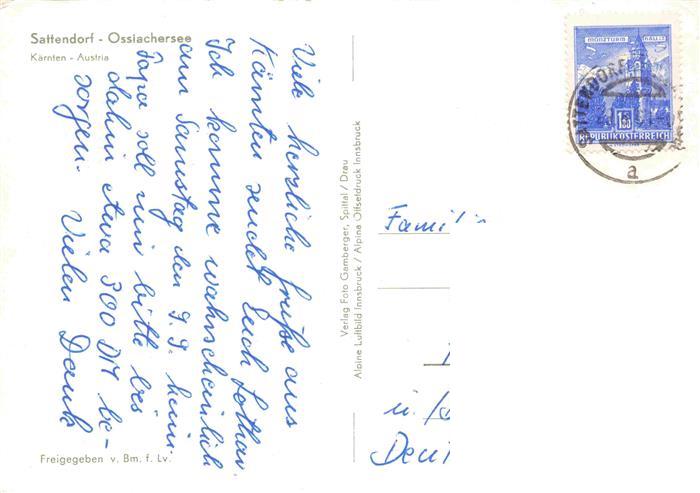 Sattendorf - Ossiachersee
Kärnten - Austria
Viele herzliche Grüße aus
Kärnten sendet Euch Lothar.
Ich komme wahrscheinlich
am Samstag den 9.9. heim.
Papa soll mir bitte bis
dahin etwa 300 DM be-
sorgen. Vielen Dank
Freigegeben v. Bm. f. Lv.
Verlag Foto Gamberger, Spittal / Drau
Alpine Luftbild Innsbruck / Alpina Offsetdruck Innsbruck
MÜNZTURM HALL i.T.
1.80
REPUBLIK ÖSTERREICH
SATTENDORF
a
Famili
ü. /
Deut